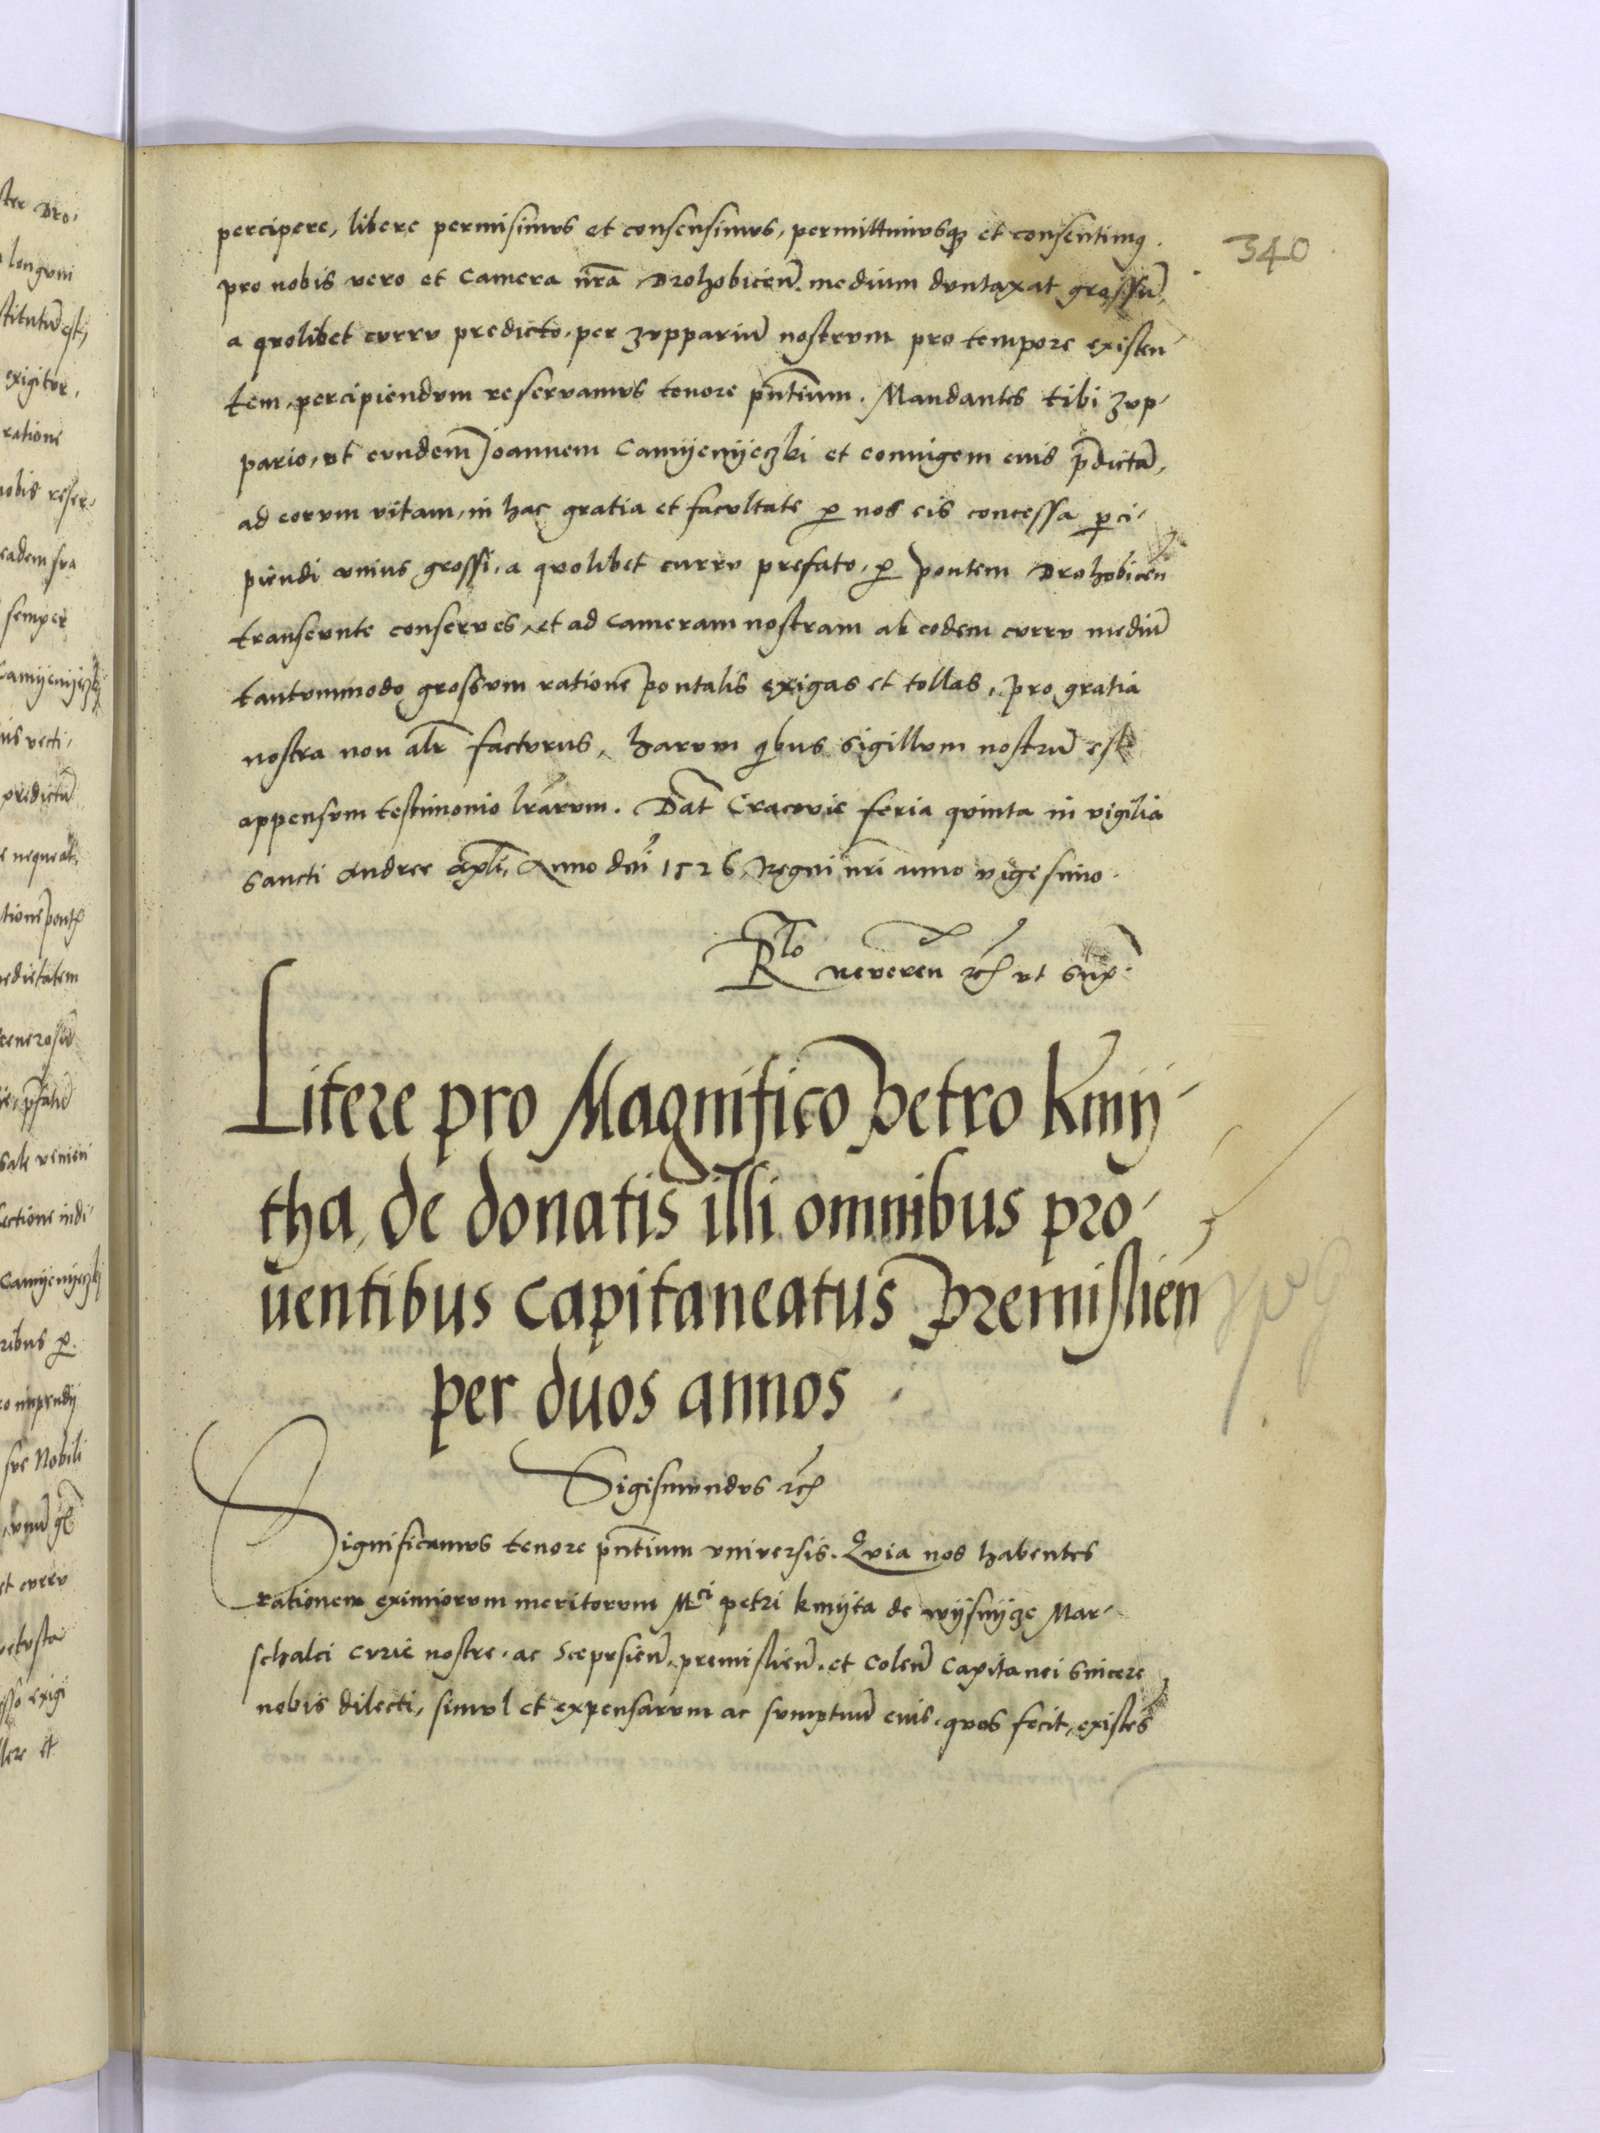 340
percipere, libere permisimus et consensimus, permittimusq₃ et consentimꝯ.
pro nobis vero et camera nr̃a Drohobiceñ. medium duntaxat grossũ,
a quolibet curru predicto, per zuppariũ nostrum pro tempore existen
tem, percipiendum reservamus tenore pñtium. Mandantes tibi zup-
pario, ut eundem Joannem Camyenyeczki et coniugem eius p̃dictã,
ad eorum vitam, in hac gratia et facultate ꝑ nos eis concessa ꝑci-
piendi unius grossi, a quolibet curru prefato, ꝑ pontem Drohobiceñ
transeunte conserves, et ad cameram nostram ab eodem curru mediũ
tantummodo grossum ratione pontalis exigas et tollas, pro gratia
nostra non alr̃ facturus, harum qibus sigillum nostrũ est
appensum testimonio lr̃arum. Dat̃ Cracovie feria quinta in vigilia
sancti Andree apl̃i, Anno dñi 1526, Regni nr̃i anno vigesimo.
Rlo reveren̄ rc̃ ut sup̃.
Litere pro Magnifico Petro Kmy-
tha, de donatis illi omnibus pro-
ventibus capitaneatus Premislień
per duos annos
Sigismundus rc̃
Significamus tenore pñtium universis. Quia nos habentes
rationem eximiorum meritorum Mci petri kmyta de wysnyze Mar-
schalci curie nostre, ac Scepusieñ, premislieñ. et Coleñ Capitanei sincere
nobis dilecti, simul et expensarum ac sumptuũ eius, quos fecit, existẽs